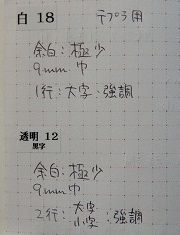 白 18 テプラ用
余白:極少
9mm巾
1行:大字:強調
透明 12
黒字
余白:極少
9mm巾
2行:大字
小字:強調